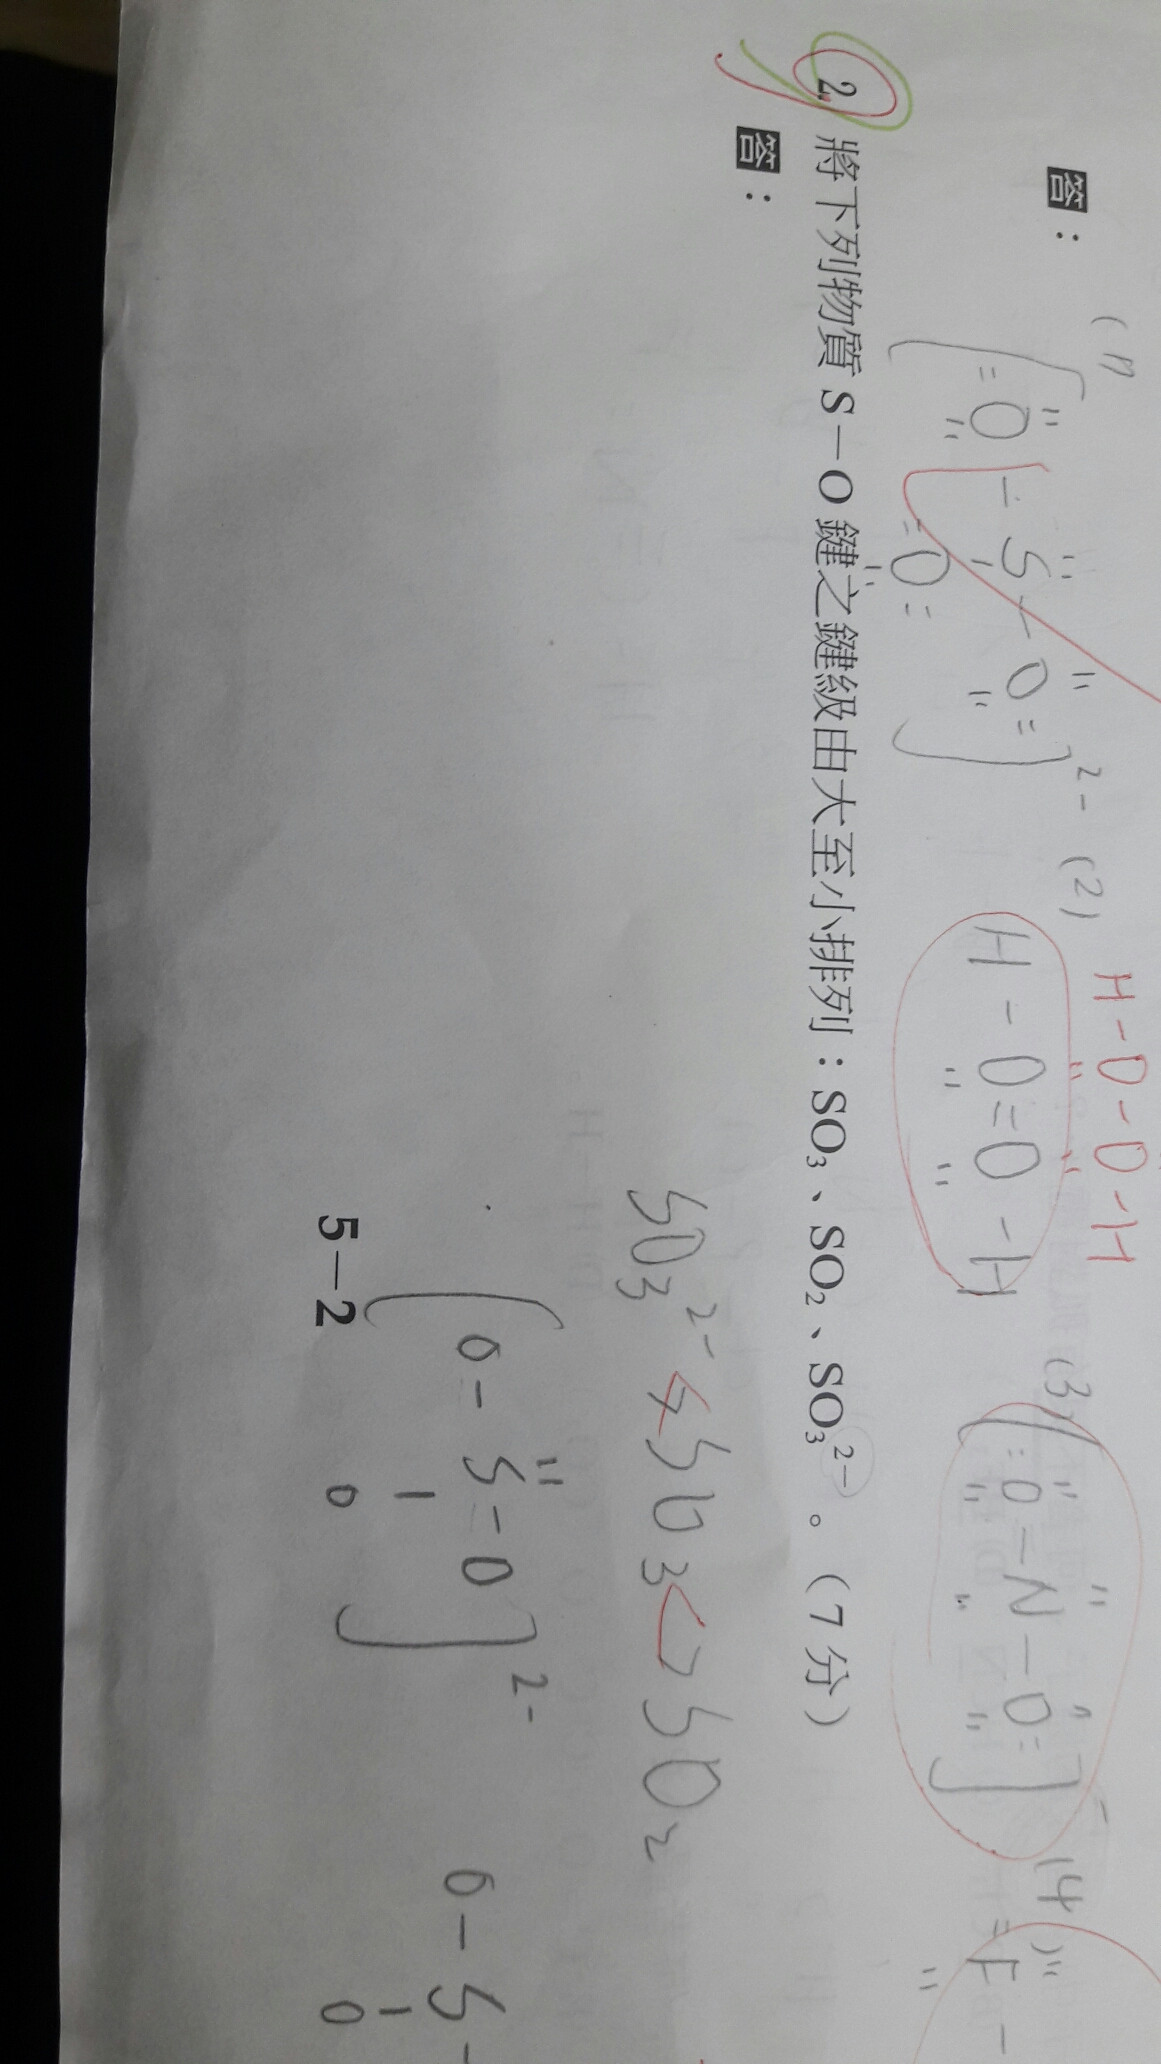 答：
(1) [:Ö-S̈-Ö:]²⁻
:O:
(2) H-O-O-H
H-O=O-H
(3) [:O-N-O:]⁻
(4) F-
2. 將下列物質 S—O 鍵之鍵級由大至小排列：SO₃、SO₂、SO₃²⁻。（7 分）
答：
SO₃²⁻ < SO₃ <> SO₂
[O-S̈=O]²⁻ O-S-
O O
5—2